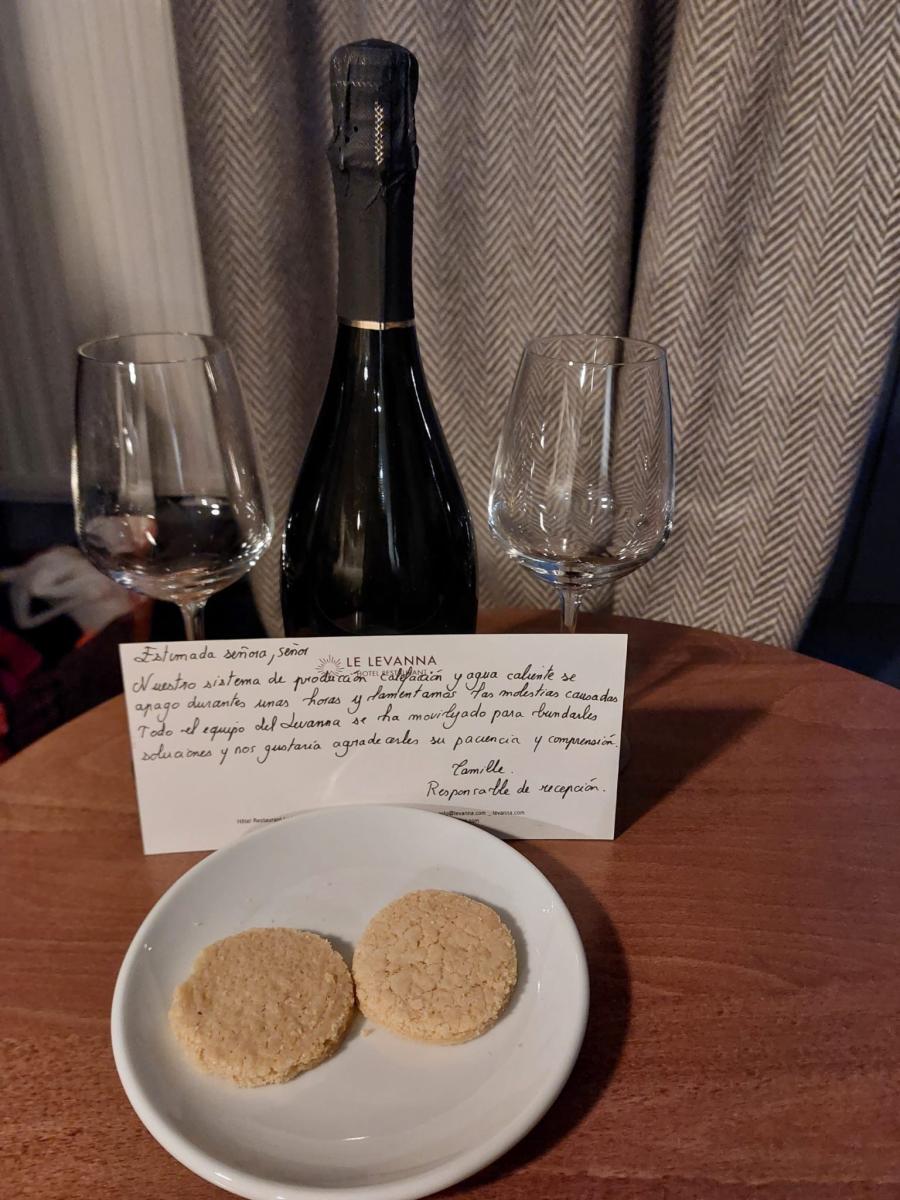 Estimada señora, señor
LE LEVANNA
HOTEL RESTAURANT
Nuestro sistema de producción calefacción y agua caliente se
apago durantes unas horas y lamentamos las molestias causadas
Todo el equipo del Levanna se ha movilizado para bundarles
soluciones y nos gustaría agradecerles su paciencia y comprensión.
Camille.
Responsable de recepción.
Hôtel Restaurant levanna.com _ levanna.com